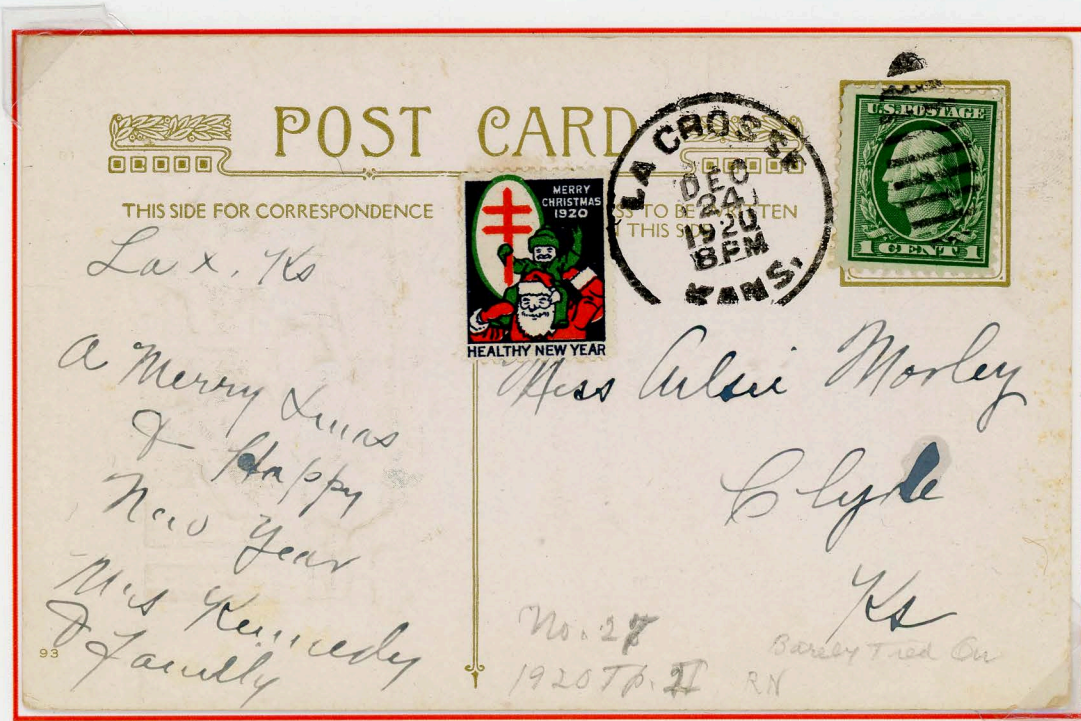 POST CARD
THIS SIDE FOR CORRESPONDENCE
SS TO BE TEN
THIS SID
MERRY
CHRISTMAS
1920
HEALTHY NEW YEAR
LA CROSSE
DEC
24
1920
8 PM
KANS.
U.S. POSTAGE
1 CENT 1
La X. Ks
A Merry Xmas
& Happy
New Year
Mrs Kennedy
& Family
93
Miss Morley
Clyde
Ks
No. 27
1920 Tp. II
Barely Tied On
RN